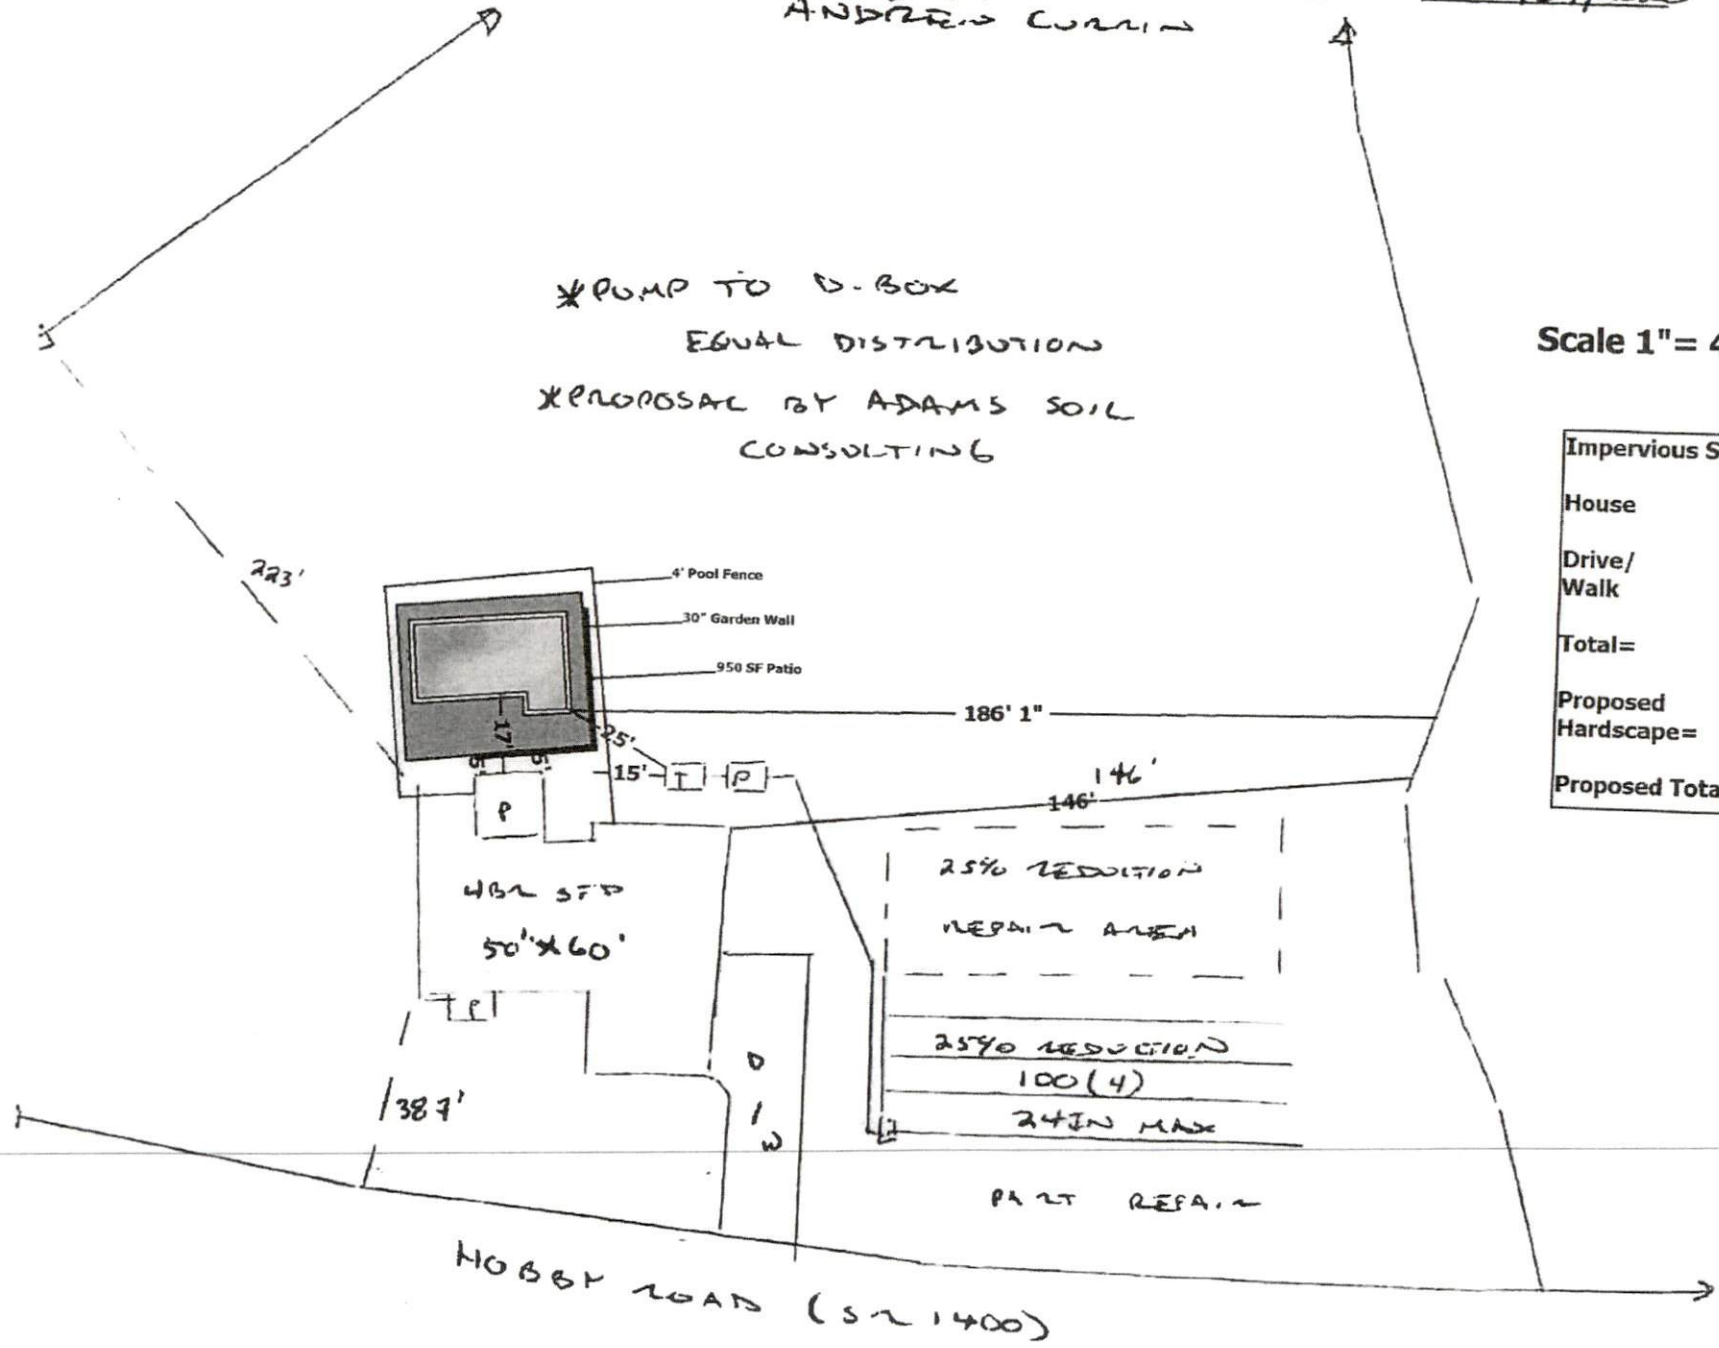 ANDREW CURRIN
*PUMP TO D-BOX
EQUAL DISTRIBUTION
*PROPOSAL BY ADAMS SOIL
CONSULTING
Scale 1"= 4
Impervious S
House
Drive/
Walk
Total=
Proposed
Hardscape=
Proposed Tota
223'
4' Pool Fence
30" Garden Wall
950 SF Patio
186' 1"
17'
25'
5'
5'
15'
T
P
146'
146'
P
4BR SFD
50'x60'
P
25% REDUCTION
REPAIR AREA
25% REDUCTION
100(4)
24IN MAX
D/W
387'
PART REPAIR
HOBBY ROAD (SR 1400)